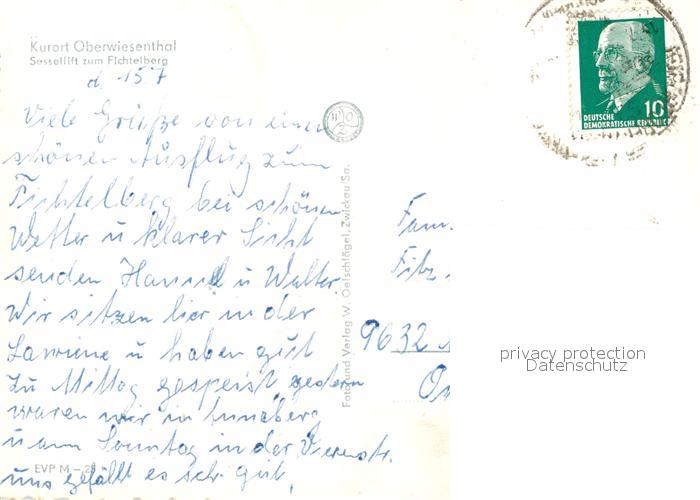 Kurort Oberwiesenthal
Sessellift zum Fichtelberg
d. 15 7
Viele Grüße von einem
schönen Ausflug zum
Fichtelberg bei schönem
Wetter u klarer Sicht
senden Hannel u Walter.
Wir sitzen hier in der
u haben gut
zu Mittag gespeist, gestern
waren wir in Annaberg
u am Sonntag in der
uns gefällt es sehr gut.
EVP M –
Foto und Verlag W. Oelschlägel, Zwickau/Sa.
Fam.
9632
DEUTSCHE
DEMOKRATISCHE REPUBLIK
10
privacy protection
Datenschutz